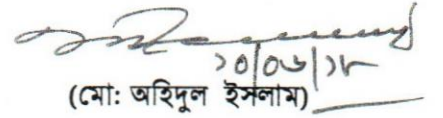 ১০/০৬/১৮
(মো: অহিদুল ইসলাম)